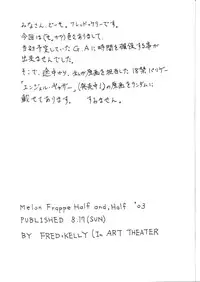 みなさん、どーも。フレッド・ケリーです。
今回は(も、か?)色々ありまして、
当初予定していたG.Aに時間を確保する事が
出来ませんでした。
そこで、途中から、ボクが原画を担当した18禁PCゲー
「エンジェル・ギャザー」(発売中!)の原画をランダムに
載せてあります。 すみません。
Melon Frappe Half and, Half '03
PUBLISHED 8.17(SUN)
BY FRED・KELLY (In ART THEATER